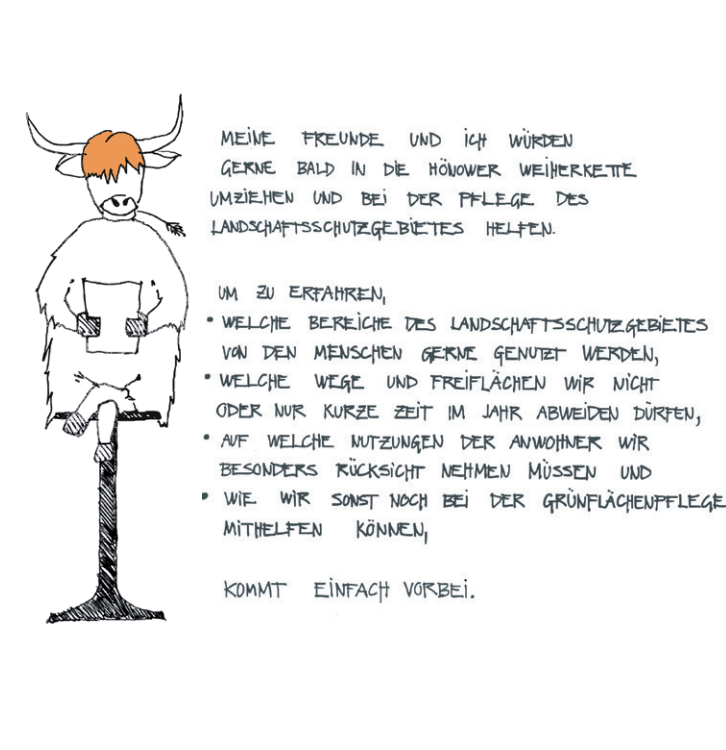 MEINE FREUNDE UND ICH WÜRDEN
GERNE BALD IN DIE HÖNOWER WEIHERKETTE
UMZIEHEN UND BEI DER PFLEGE DES
LANDSCHAFTSSCHUTZGEBIETES HELFEN.
UM ZU ERFAHREN,
• WELCHE BEREICHE DES LANDSCHAFTSSCHUTZGEBIETES
VON DEN MENSCHEN GERNE GENUTZT WERDEN,
• WELCHE WEGE UND FREIFLÄCHEN WIR NICHT
ODER NUR KURZE ZEIT IM JAHR ABWEIDEN DÜRFEN,
• AUF WELCHE NUTZUNGEN DER ANWOHNER WIR
BESONDERS RÜCKSICHT NEHMEN MÜSSEN UND
• WIE WIR SONST NOCH BEI DER GRÜNFLÄCHENPFLEGE
MITHELFEN KÖNNEN,
KOMMT EINFACH VORBEI.